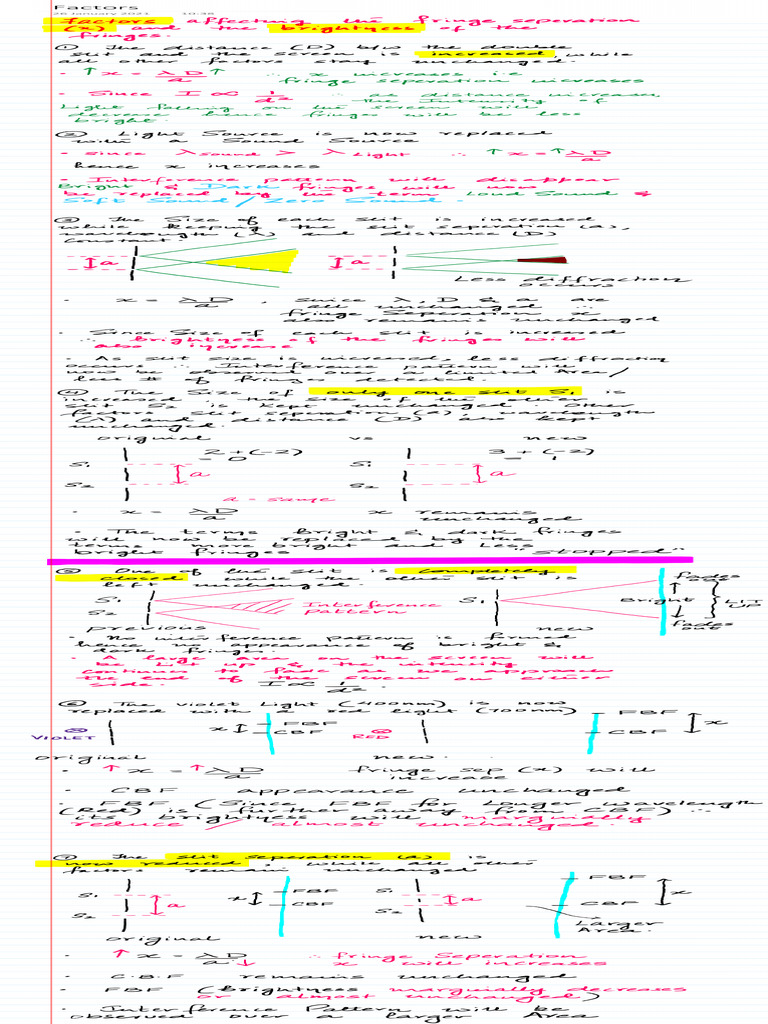 Factors
26 January 2021 10:48
Factors affecting the fringe seperation
(x) and the brightness of the
fringes.
① The distance (D) b/w the double
slit and the screen is increased, while
all other factors stay unchanged.
- ↑ x = λD↑/a ∴ x increases i.e
fringe seperation increases
- Since I ∝ 1/d² ∴ as distance increases,
the Intensity of
light falling on the screen will
decrease hence fringes will be less
bright
② Light Source is now replaced
with a Sound Source
- since λ sound > λ light ∴ ↑x = ↑λD/a
hence x increases
- Interference pattern will disappear
Bright & Dark fringes will now
be replaced by the term Loud Sound &
Soft Sound / Zero Sound.
③ The Size of each slit is increased
while keeping the slit seperation (a),
wavelength (λ) and distance (D)
constant.
a a
Less diffraction
occurs
- x = λD/a, since λ, D & a are
all unchanged ∴
fringe Seperation x
also remain unchanged
- Since Size of each slit is increased
∴ brightness of the fringes will
also increase
- As slit size is increased, less diffraction
occurs ∴ Interference pattern will
now be observed over limited Area /
less # of fringes detected.
④ The Size of only one slit S₁ is
increased, the size of the other
slit S₂ is kept unchanged. Other
factors slit seperation (a), wavelength
(λ) and distance (D) also kept
unchanged.
original vs new
S₁ 2+(-2) S₁ 3+(-2)
0 1
a a
S₂ S₂
a = same
- x = λD/a x remains
unchanged
- The terms bright & dark fringes
will now be replaced by the
terms more bright and Less
bright fringes "stopped"
⑤ One of the slit is completely
closed while the other slit is
left unchanged.
S₁ Interference
pattern S₁ Bright fades
out
S₂ LIT
UP
fades
out
previous new
- No interference pattern is formed
hence no appearance of bright &
dark fringes.
- A large area on the screen will
be lit up & the intensity
continues to fade as we approach
the end of the screen on either
side. I ∝ 1/d².
⑥ The violet light (400nm) is now
replaced with a red light (700nm)
VIOLET x FBF
CBF RED FBF
CBF x
original new.
- ↑ x = ↑λD/a fringe sep (x) will
increase
- CBF appearance unchanged
- FBF (Since FBF for Longer wavelength
(Red) is further away from CBF) ∴
its brightness will marginally
reduce / almost unchanged.
⑦ The slit seperation (a) is
now reduced, while all other
factors remain unchanged
S₁ a x FBF S₁ a FBF x
S₂ CBF S₂ CBF
Larger
Area.
original new
- ↑ x = λD/a↓ ∴ fringe Seperation
x will increases
- C.B.F remains unchanged
- FBF (brightness marginally decreases
or almost unchanged)
- Interference Pattern will be
observed over a larger Area